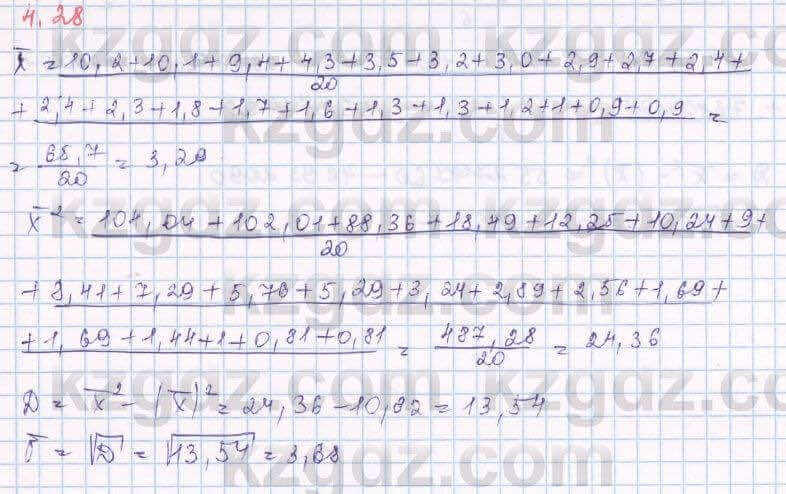 4.28
x̄ = 10,2+10,1+9,4+4,3+3,5+3,2+3,0+2,9+2,7+2,4+
20
+2,4+2,3+1,8+1,7+1,6+1,3+1,3+1,2+1+0,9+0,9 =
= 65,7/20 = 3,29
x̄² = 104,04+102,01+88,36+18,49+12,25+10,24+9+
20
+8,41+7,29+5,76+5,29+3,24+2,89+2,56+1,69+
+1,69+1,44+1+0,81+0,81 = 487,28/20 = 24,36
D = x̄² - (x̄)² = 24,36-10,82 = 13,54
σ = √D = √13,54 = 3,68
kzgdz.com